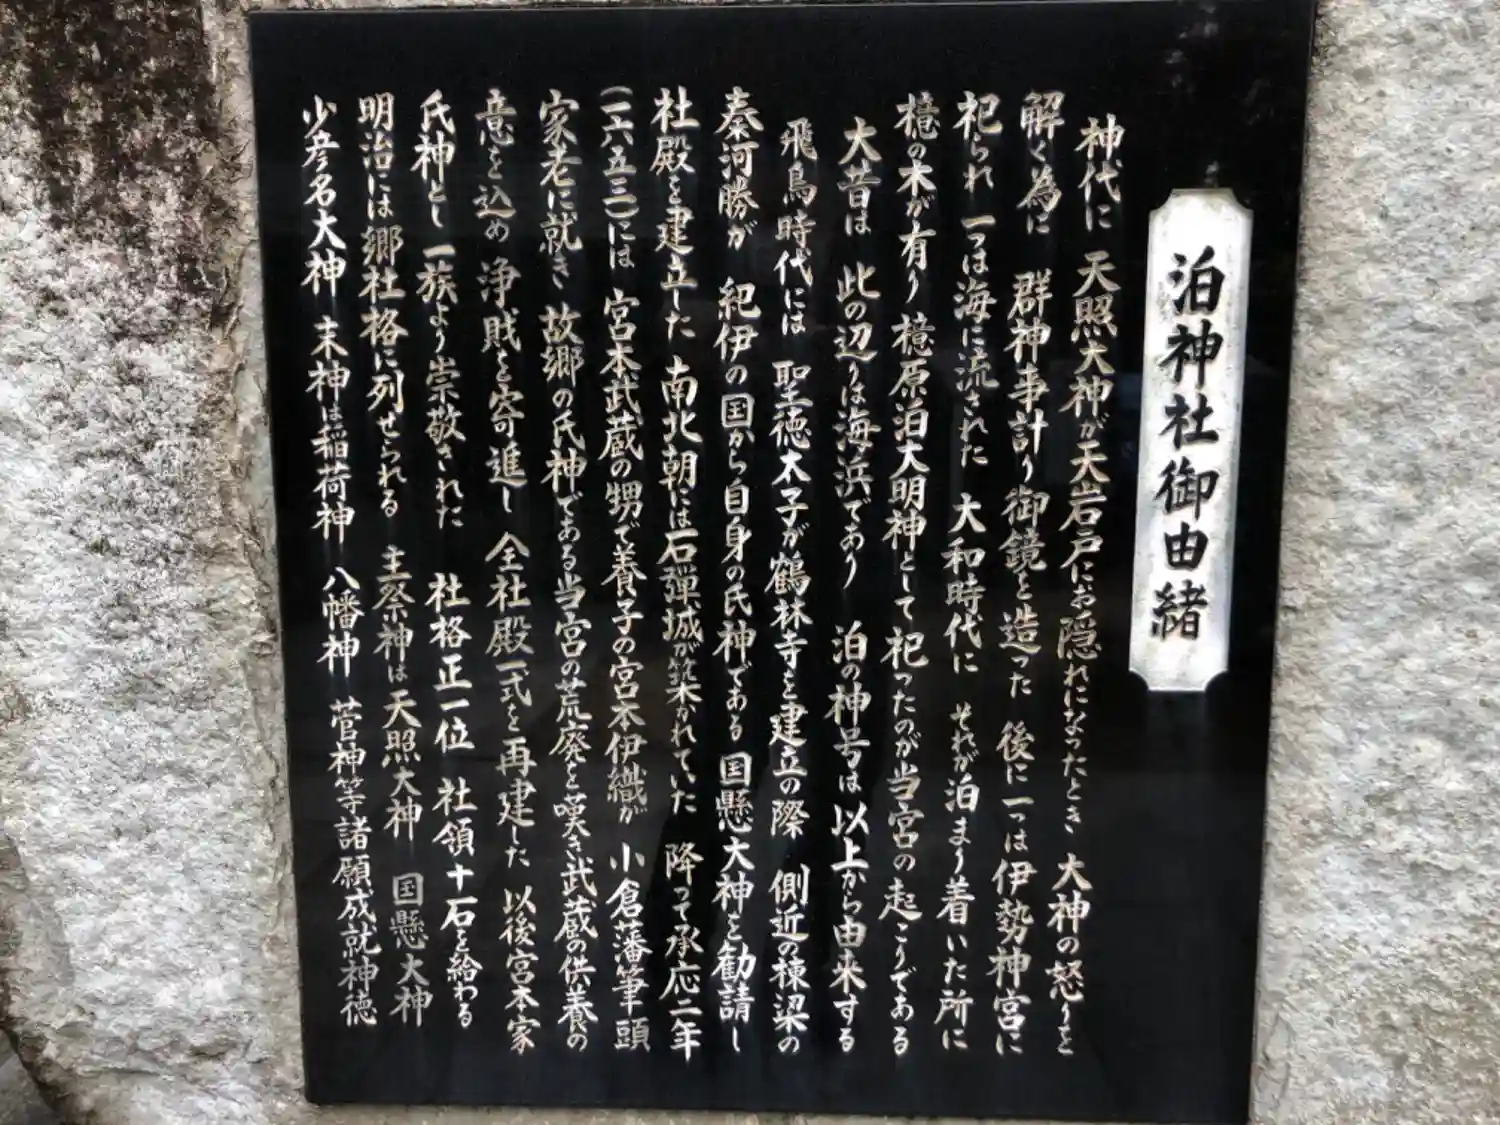 泊神社御由緒
神代に 天照大神が天岩戸にお隠れになったとき 大神の怒りを
解く為に 群神事計り御鏡を造った 後に一つは伊勢神宮に
祀られ 一つは海に流された 大和時代に それが泊まり着いた所に
檍の木が有り 檍原泊大明神として祀ったのが当宮の起こりである
大昔は 此の辺りは海浜であり 泊の神号は以上から由来する
飛鳥時代には 聖徳太子が鶴林寺を建立の際 側近の棟梁の
秦河勝が 紀伊の国から自身の氏神である 国懸大神を勧請し
社殿を建立した 南北朝には石弾城が築かれていた 降って承応二年
(一六五三)には 宮本武蔵の甥で養子の宮本伊織が 小倉藩筆頭
家老に就き 故郷の氏神である当宮の荒廃を嘆き武蔵の供養の
意を込め 浄財を寄進し 全社殿一式を再建した 以後宮本家
氏神とし 一族より崇敬された 社格正一位 社領十石を給わる
明治には郷社格に列せられる 主祭神は天照大神 国懸大神
少彦名大神 末神は稲荷神 八幡神 菅神等諸願成就神徳